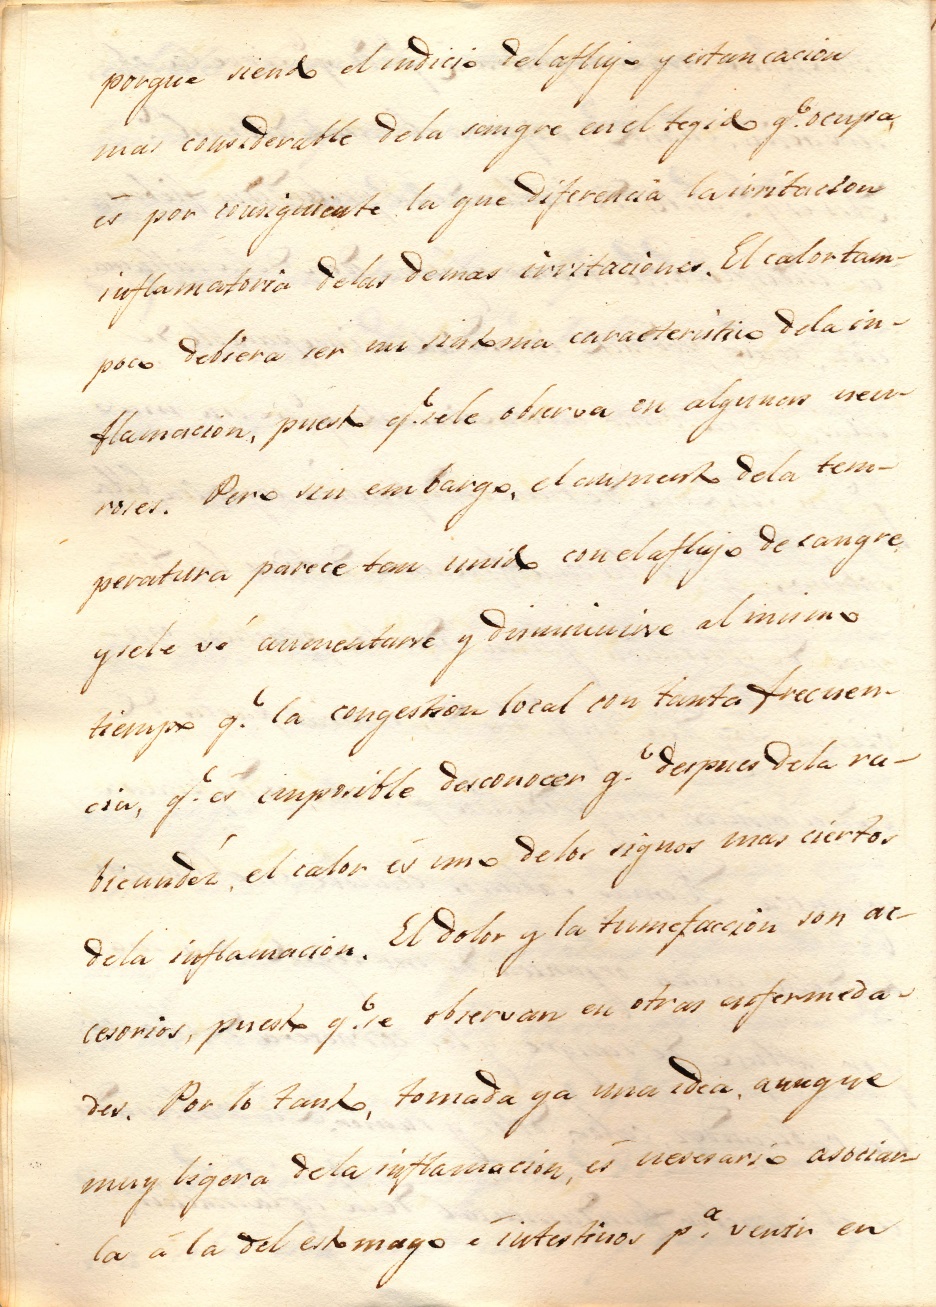 porque siendo el indicio del aflujo y estancacion
mas considerable dela sangre en el tegido q.e ocupa,
és por consiguiente la que diferencía la irritacion
inflamatoria delas demas irritaciones. El calor tam-
poco debiera ser un sintoma característico dela in-
flamacion, puesto q.e sele observa en algunas neu-
roses. Pero sin embargo, el aumento dela tem-
peratura parece tan unido con el aflujo de sangre,
y sele vé aumentarse y disminuirse al mismo
tiempo q.e la congestion local con tanta frecuen-
cia, q.e és imposible desconocer q.e despues dela ru-
bicundéz, el calor és uno delos signos mas ciertos
dela inflamacion. El dolor y la tumefaccion son ac-
cesorios, puesto q.e se observan en otras enfermeda-
des. Por lo tanto, tomada ya una idea, aunque
muy ligera dela inflamacion, és nesesario asociar
la á la del estomago é intestinos p.a venir en